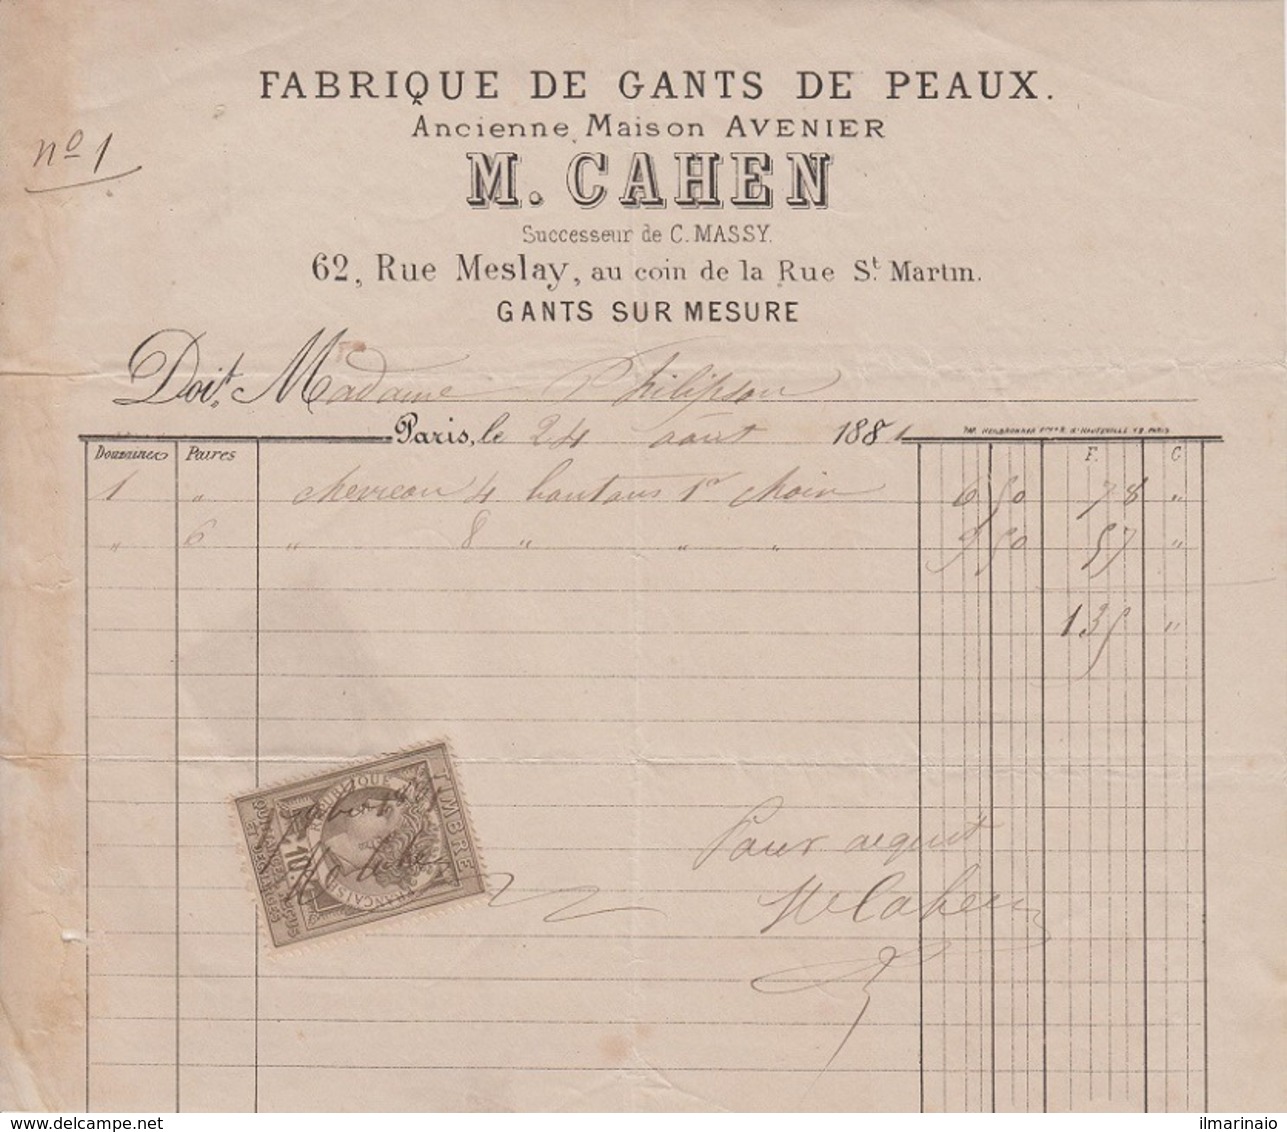 FABRIQUE DE GANTS DE PEAUX.
Ancienne Maison AVENIER
nº 1
M. CAHEN
Successeur de C. MASSY.
62, Rue Meslay, au coin de la Rue St. Martin.
GANTS SUR MESURE
Doit, Madame Philipson
Paris, le 24 août 1881
PAR. HEILBRONNER
PARIS
Douzaines Paires F. C
1 " chevreau 4 boutons 1er choix 6 50 78 "
" 6 " 8 " " " 9 50 57 "
135 "
TIMBRE
RÉPUBLIQUE FRANÇAISE
10
QUITTANCES REÇUS ET DÉCHARGES
Pour acquit
M Cahen
delcampe.net
ilmarinaio